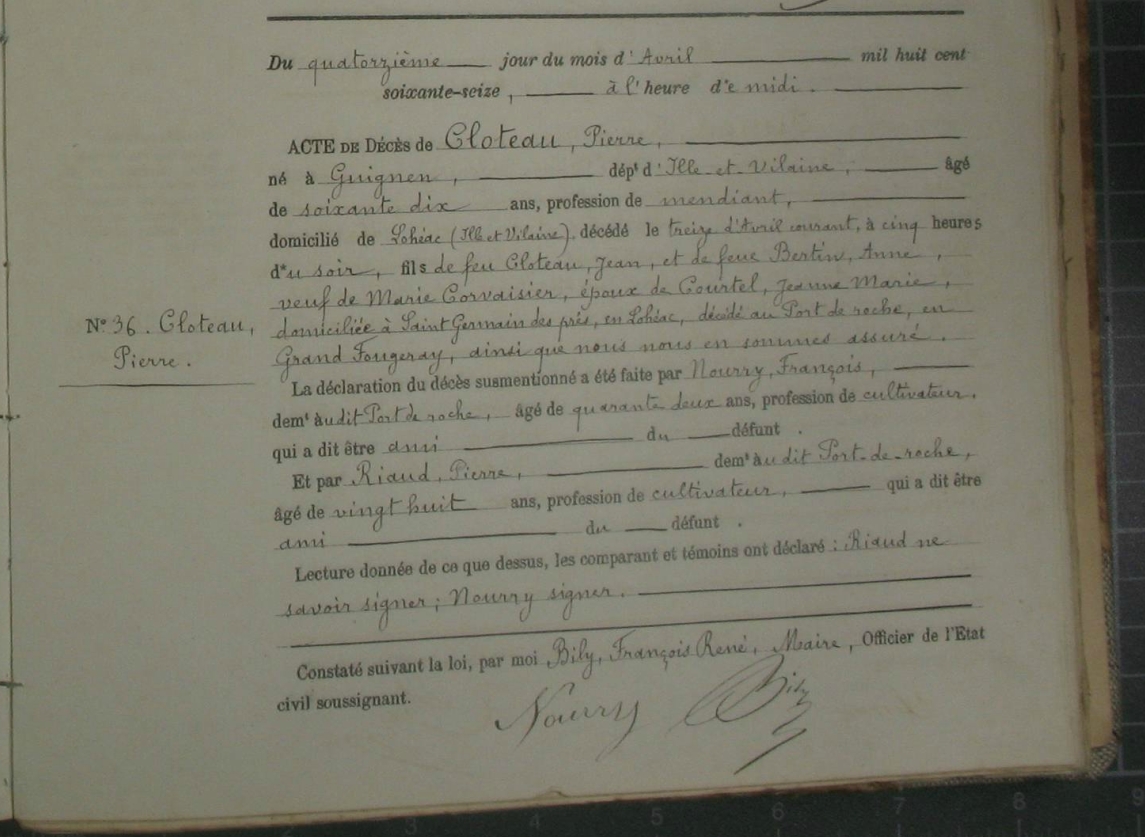 Du quatorzième jour du mois d'Avril mil huit cent
soixante-seize, à l'heure de midi.
ACTE DE DÉCÈS de Cloteau, Pierre,
né à Guignen, dépt d'Ille-et-Vilaine, âgé
de soixante dix ans, profession de mendiant,
domicilié de Lohéac (Ille et Vilaine), décédé le treize d'Avril courant, à cinq heures
du soir, fils de feu Cloteau, Jean, et de feue Bertin, Anne,
veuf de Marie Corvaisier, époux de Courtel, Jeanne Marie,
domiciliée à Saint Germain des prés, en Lohéac, décédé au Port de roche, en
Grand Fougeray, ainsi que nous nous en sommes assuré.
N° 36. Cloteau,
Pierre.
La déclaration du décès susmentionné a été faite par Nourry, François,
demt audit Port de roche, âgé de quarante deux ans, profession de cultivateur,
qui a dit être ami du défunt.
Et par Riaud, Pierre, demt audit Port-de-roche,
âgé de vingt huit ans, profession de cultivateur, qui a dit être
ami du défunt.
Lecture donnée de ce que dessus, les comparant et témoins ont déclaré : Riaud ne
savoir signer; Nourry signer.
Constaté suivant la loi, par moi Bily, François René, Maire, Officier de l'Etat
civil soussignant.
Nourry Bily
2 3 4 5 6 7 8 9